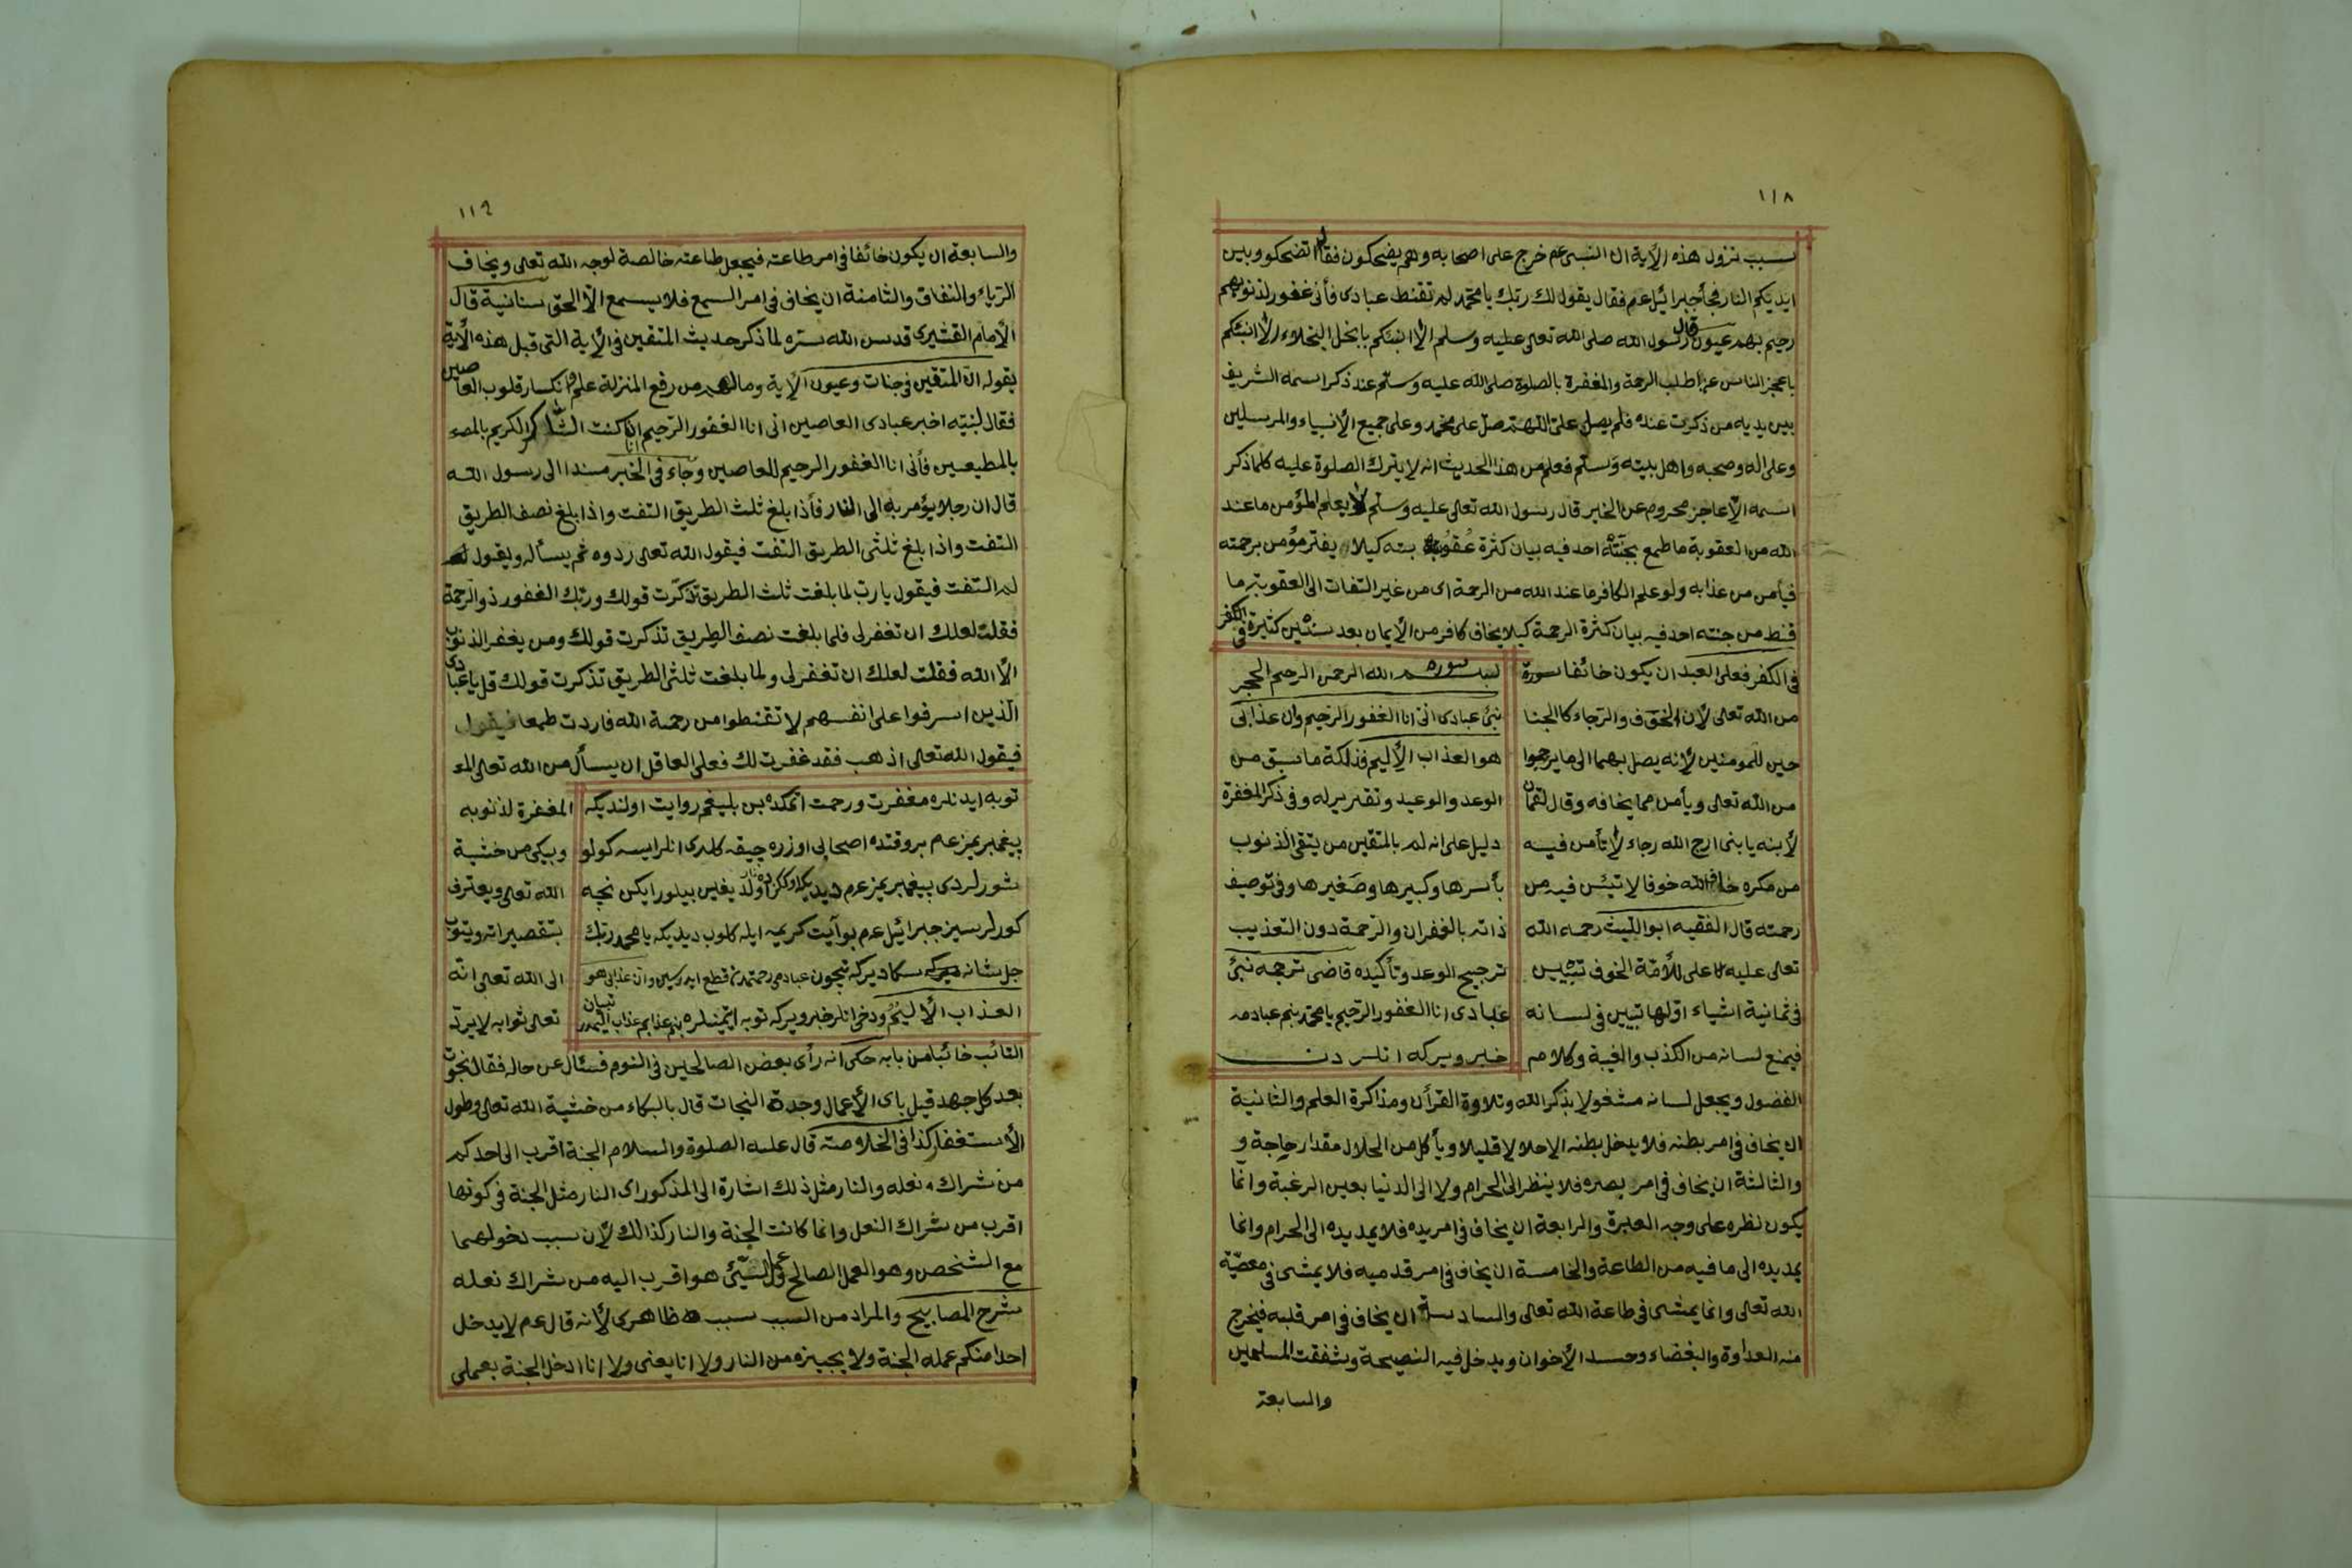 ١١٨
سبب نزول هذه الأية ان النبى عم خرج على اصحابه وهم يضحكون فقال اتضحكو وبين
ايديكم النار فجأ جبرائيل عم فقال يقول لك ربك يا محمد لم تقنط عبادى فأنى غفور لذنوبهم
رحيم بهم عيون قال رسول الله صلى الله تعالى عليه وسلم الا انبئكم بابخل البخلاء الا انبئكم
باعجز الناس عن اطلب الرحمة والمغفرة بالصلوة صلى الله عليه وسلم عند ذكر اسمه الشريف
بين يديه من ذكرت عنده فلم يصل على اللهم صل على محمد وعلى جميع الأنبياء والمرسلين
وعلى اله وصحبه واهل بيته وسلم فعلم من هذا الحديث انه لا يترك الصلوة عليه كلما ذكر
اسمه الا عاجز محروم عن الخير قال رسول الله تعالى عليه وسلم لا يعلم المؤمن ما عند
الله من العقوبة ما طمع بجنته احد فيه بيان كثرة عقوبته كيلا يفتر مؤمن برحمته
فيأمن من عذابه ولو علم الكافر ما عند الله من الرحمة اى من غير التفات الى العقوبة ما
قنط من جنته احد فيه بيان كثرة الرحمة كيلا يخاف كافر من الأيمان بعد سنين كثيرة فى الكفر
فى الكفر فعلى العبد ان يكون خائفا سورة
من الله تعالى لأن الخوف والرجاء كالجنا
حين للمومنين لأنه يصل بهما الى ما يرجوا
من الله تعالى ويأمن مما يخافه وقال لقمان
لأبنه يا بنى ارج الله رجاء لا تأمن فيه
من مكره خاف الله خوفا لا تيئس فيه من
رحمته قال الفقيه ابو الليث رحمه الله
تعالى عليه علامة الخوف تتبين
فى ثمانية اشياء اولها تتبين فى لسانه
فيمنع لسانه من الكذب والغيبة وكلام
سوره بسم الله الرحمن الرحيم الحجر
نبئ عبادى انى انا الغفور الرحيم وان عذابى
هو العذاب الأليم فذلكة ما سبق من
الوعد والوعيد وتقرير له وفى ذكر المغفرة
دليل على انه لم بالمتقين من يتقى الذنوب
بأسرها وكبيرها وصغيرها وفى توصيف
ذاته بالغفران والرحمة دون التعذيب
ترجيح الوعد وتأكيده قاضى ترجمه نبئ
عبادى انا الغفور الرحيم يا محمد بنم عبادمه
خبر ويركه انلر دن
الفضول ويجعل لسانه مشغولا بذكر الله وتلاوة القرأن ومذاكرة العلم والثانية
ان يخاف فى امر بطنه فلا يدخل بطنه الا حلالا قليلا ويأكل من الحلال مقدار حاجة و
والثالثة ان يخاف فى امر بصره فلا ينظر الى الحرام ولا الى الدنيا بعين الرغبة وانما
يكون نظره على وجه العبرة والرابعة ان يخاف فى امر يده فلا يمد يده الى الحرام وانما
يمد يده الى ما فيه من الطاعة والخامسة ان يخاف فى امر قدميه فلا يمشى فى معصية
الله تعالى وانما يمشى فى طاعة الله تعالى والسادسة ان يخاف فى امر قلبه فيخرج
منه العداوة والبغضاء وحسد الأخوان ويدخل فيه النصيحة وشفقت المسلمين
والسابعة
١١٩
والسابعة ان يكون خائفا فى امر طاعته فيجعل طاعته خالصة لوجه الله تعالى ويخاف
الرياء والنفاق والثامنة ان يخاف فى امر السمع فلا يسمع الا الحق سنانية قال
الأمام القشيرى قدس الله سره لما ذكر حديث المتقين فى الأية التى قبل هذه الأية
بقوله ان المتقين فى جنات وعيون الأية ومالهم من رفع المنزلة علم انكسار قلوب العاصين
فقال لنبيه اخبر عبادى العاصين انى انا الغفور الرحيم ان كنت الشاكر الكريم
بالمطيعين فأنى انا الغفور الرحيم للعاصين وجاء فى الخبر مسندا الى رسول الله
قال ان رجلا يؤمر به الى النار فأذا بلغ ثلث الطريق التفت واذا بلغ نصف الطريق
التفت واذا بلغ ثلثى الطريق التفت فيقول الله تعالى ردوه ثم يسأله ويقول له
لم التفت فيقول يا رب لما بلغت ثلث الطريق تذكرت قولك وربك الغفور ذو الرحمة
فقلت لعلك ان تغفر لى فلما بلغت نصف الطريق تذكرت قولك ومن يغفر الذنوب
الا الله فقلت لعلك ان تغفر لى ولما بلغت ثلثى الطريق تذكرت قولك قل يا عبادى
الذين اسرفوا على انفسهم لا تقنطوا من رحمة الله فازدت طمعا فيقول
فيقول الله تعالى اذهب فقد غفرت لك فعلى العاقل ان يسأل من الله تعالى
توبه ايدنلره مغفرت ورحمت اتمكده بن بليغم روايت اولنديكه
پيغمبريمز عم بر وقتده اصحابى اوزره چيقه كلدى انلر ايسه كولو
شورلردى پيغمبريمز عم ديديكه اوكنزده نار اولديغين بيلورايكن نچه
كولرسيز جبرائيل عم بو آيت كريمه ايله كلوب ديديكه يا محمد ربك
جل شانه سكا ديركه نيچون عبادمى رحمتمدن قطع ايدرسين وان عذابى هو
العذاب الأليم ودخى انلر خبر ويركه توبه ايتمينلره بنم عذابم عذاب اليمدر تبيان
المغفرة لذنوبه
ويبكى من خشية
الله تعالى ويعترف
بتقصيراته ويتوب
الى الله تعالى انه
تعالى ثوابه لا يرد
التائب خائبا من بابه حكى انه رأى بعض الصالحين فى النوم فسئال عن حاله فقال نجوت
بعد كل جهد قيل باى الأعمال وجدة النجات قال بالبكاء من خشية الله تعالى وطول
الأستغفار كذا فى الخلاصته قال عليه الصلوة والسلام الجنة اقرب الى احدكم
من شراك نعله والنار مثل ذلك اشارة الى المذكور اى النار مثل الجنة فى كونها
اقرب من شراك النعل وانما كانت الجنة والنار كذالك لأن سبب دخولهما
مع الشخص وهو العمل الصالح وعمل السيئ هو اقرب اليه من شراك نعله
شرح المصابيح والمراد من السبب سبب ظاهرى لأنه قال عم لا يدخل
احدا منكم عمله الجنة ولا يجيزه من النار ولا انا يعنى ولا انا ادخل الجنة بعملى